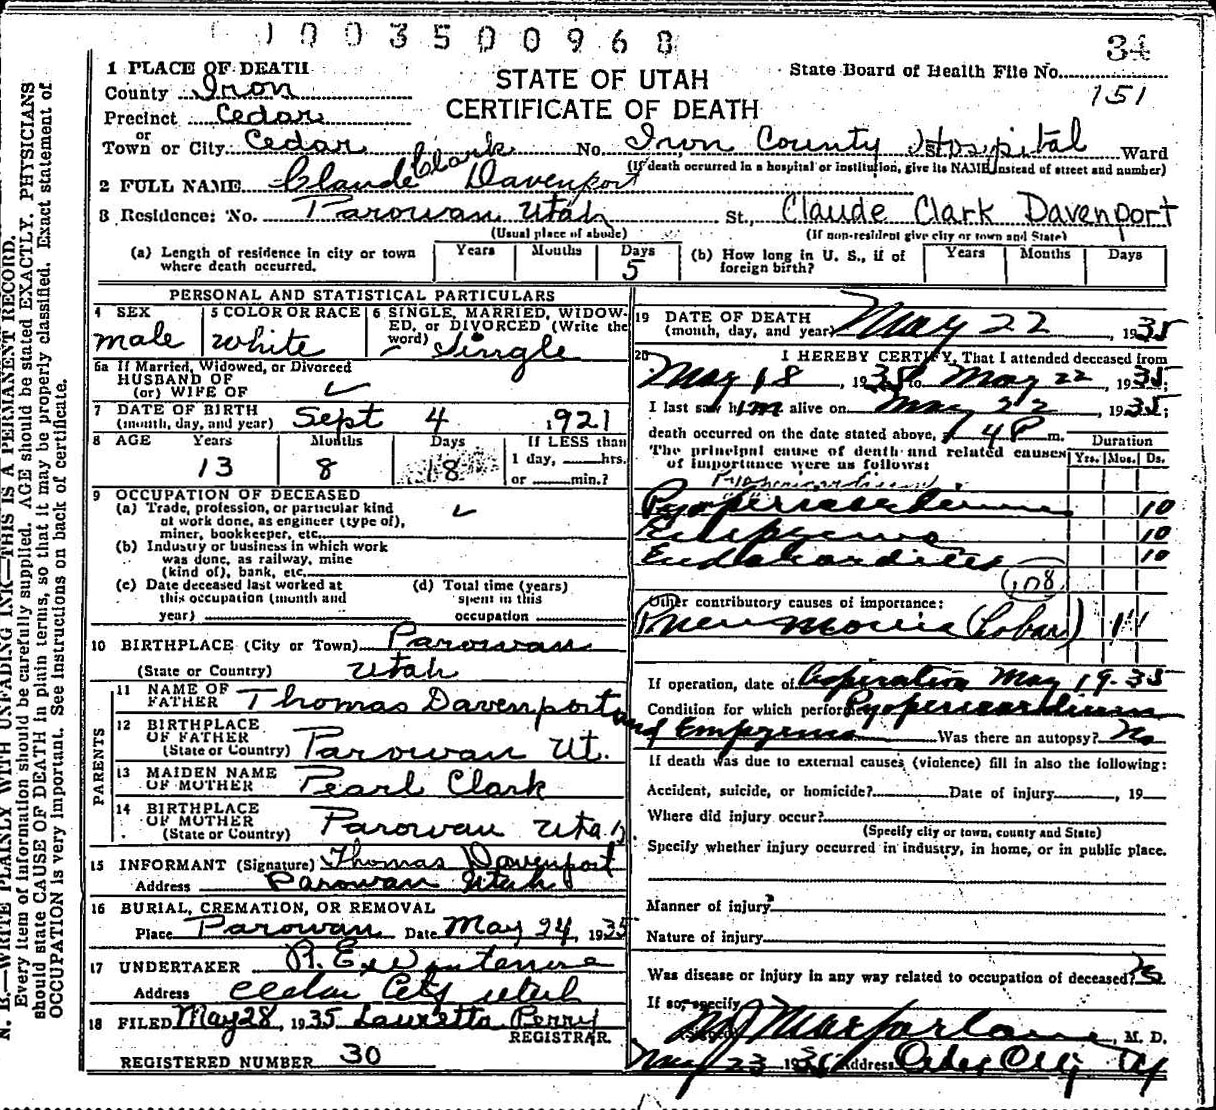 1003500968
34
1 PLACE OF DEATH
County Iron
STATE OF UTAH
CERTIFICATE OF DEATH
State Board of Health File No.
151
Precinct Cedar
or
Town or City Cedar No. Iron County Hospital Ward
(If death occurred in a hospital or institution, give its NAME instead of street and number)
2 FULL NAME Claude Clark Davenport
3 Residence: No. Parowan Utah St., Claude Clark Davenport
(Usual place of abode) (If non-resident give city or town and State)
(a) Length of residence in city or town where death occurred. Years Months Days 5
(b) How long in U. S., if of foreign birth? Years Months Days
PERSONAL AND STATISTICAL PARTICULARS
4 SEX male
5 COLOR OR RACE white
6 SINGLE, MARRIED, WIDOWED, or DIVORCED (Write the word) Single
6a If Married, Widowed, or Divorced
HUSBAND OF
(or) WIFE OF
7 DATE OF BIRTH
(month, day, and year) Sept 4 1921
8 AGE Years 13 Months 8 Days 18 If LESS than
1 day, hrs.
or min.?
9 OCCUPATION OF DECEASED
(a) Trade, profession, or particular kind
of work done, as engineer (type of),
miner, bookkeeper, etc.
(b) Industry or business in which work
was done, as railway, mine
(kind of), bank, etc.
(c) Date deceased last worked at
this occupation (month and
year)
(d) Total time (years)
spent in this
occupation
10 BIRTHPLACE (City or Town) Parowan
(State or Country) Utah
PARENTS
11 NAME OF
FATHER Thomas Davenport
12 BIRTHPLACE
OF FATHER
(State or Country) Parowan Ut.
13 MAIDEN NAME
OF MOTHER Pearl Clark
14 BIRTHPLACE
OF MOTHER
(State or Country) Parowan Utah
15 INFORMANT (Signature) Thomas Davenport
Address Parowan Utah
16 BURIAL, CREMATION, OR REMOVAL
Place Parowan Date May 24, 1935
17 UNDERTAKER
Address Cedar City Utah
18 FILED May 28, 1935 Lauretta Perry
REGISTRAR.
REGISTERED NUMBER 30
19 DATE OF DEATH
(month, day, and year) May 22, 1935
20 I HEREBY CERTIFY, That I attended deceased from
May 18, 1935 to May 22, 1935;
I last saw him alive on May 22, 1935;
death occurred on the date stated above, 1 40 P m.
The principal cause of death and related causes
of importance were as follows:
Duration
Yrs. Mos. Ds.
Pyopericardium
Pyopericardium 10
Empyema 10
Endocarditis 10
108
Other contributory causes of importance:
Pneumonia (Lobar) 11
If operation, date of Operation May 19-35
Condition for which performed Pyopericardium
and Empyema Was there an autopsy? No
If death was due to external causes (violence) fill in also the following:
Accident, suicide, or homicide? Date of injury , 19
Where did injury occur?
(Specify city or town, county and State)
Specify whether injury occurred in industry, in home, or in public place.
Manner of injury
Nature of injury
Was disease or injury in any way related to occupation of deceased? No
If so, specify
(Signed) M J Macfarlane, M. D.
May 23 1935 Address Cedar City Ut
N. B.—WRITE PLAINLY WITH UNFADING INK—THIS IS A PERMANENT RECORD.
Every item of information should be carefully supplied. AGE should be stated EXACTLY. PHYSICIANS
should state CAUSE OF DEATH in plain terms, so that it may be properly classified. Exact statement of
OCCUPATION is very important. See instructions on back of certificate.